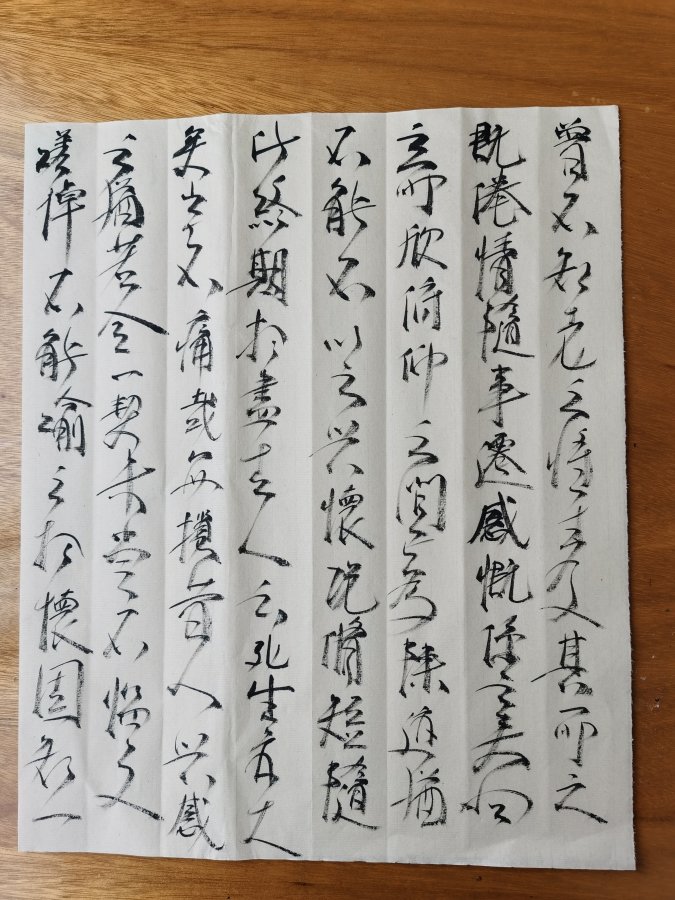 曾不知老之將至及其所之
既倦情隨事遷感慨係之矣向
之所欣俯仰之間為陳迹猶
不能不以之興懷況脩短隨
化終期於盡古人云死生亦大
矣豈不痛哉每攬昔人興感
之由若合一契未嘗不臨文
嗟悼不能喻之於懷固知一